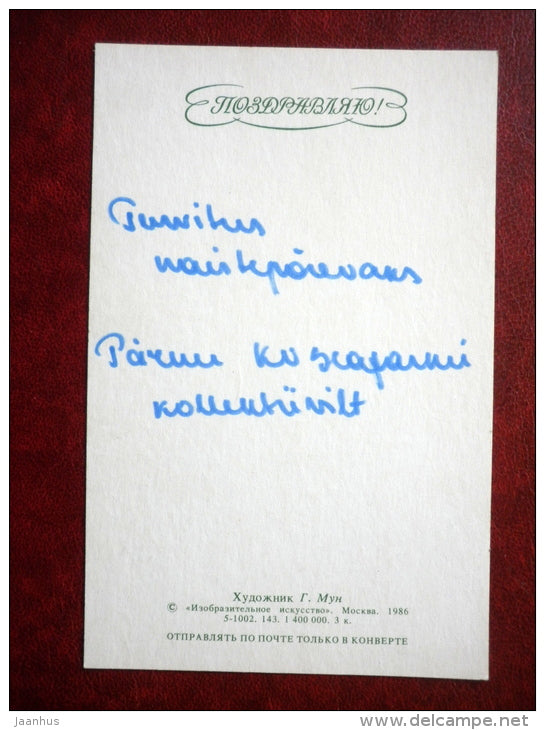 ПОЗДРАВЛЯЮ!
naistepäevaks
Pärnu KV
kollektiivilt
Художник Г. Мун
© «Изобразительное искусство». Москва. 1986
5-1002. 143. 1 400 000. 3 к.
ОТПРАВЛЯТЬ ПО ПОЧТЕ ТОЛЬКО В КОНВЕРТЕ
jaanhus
www.delcampe.net